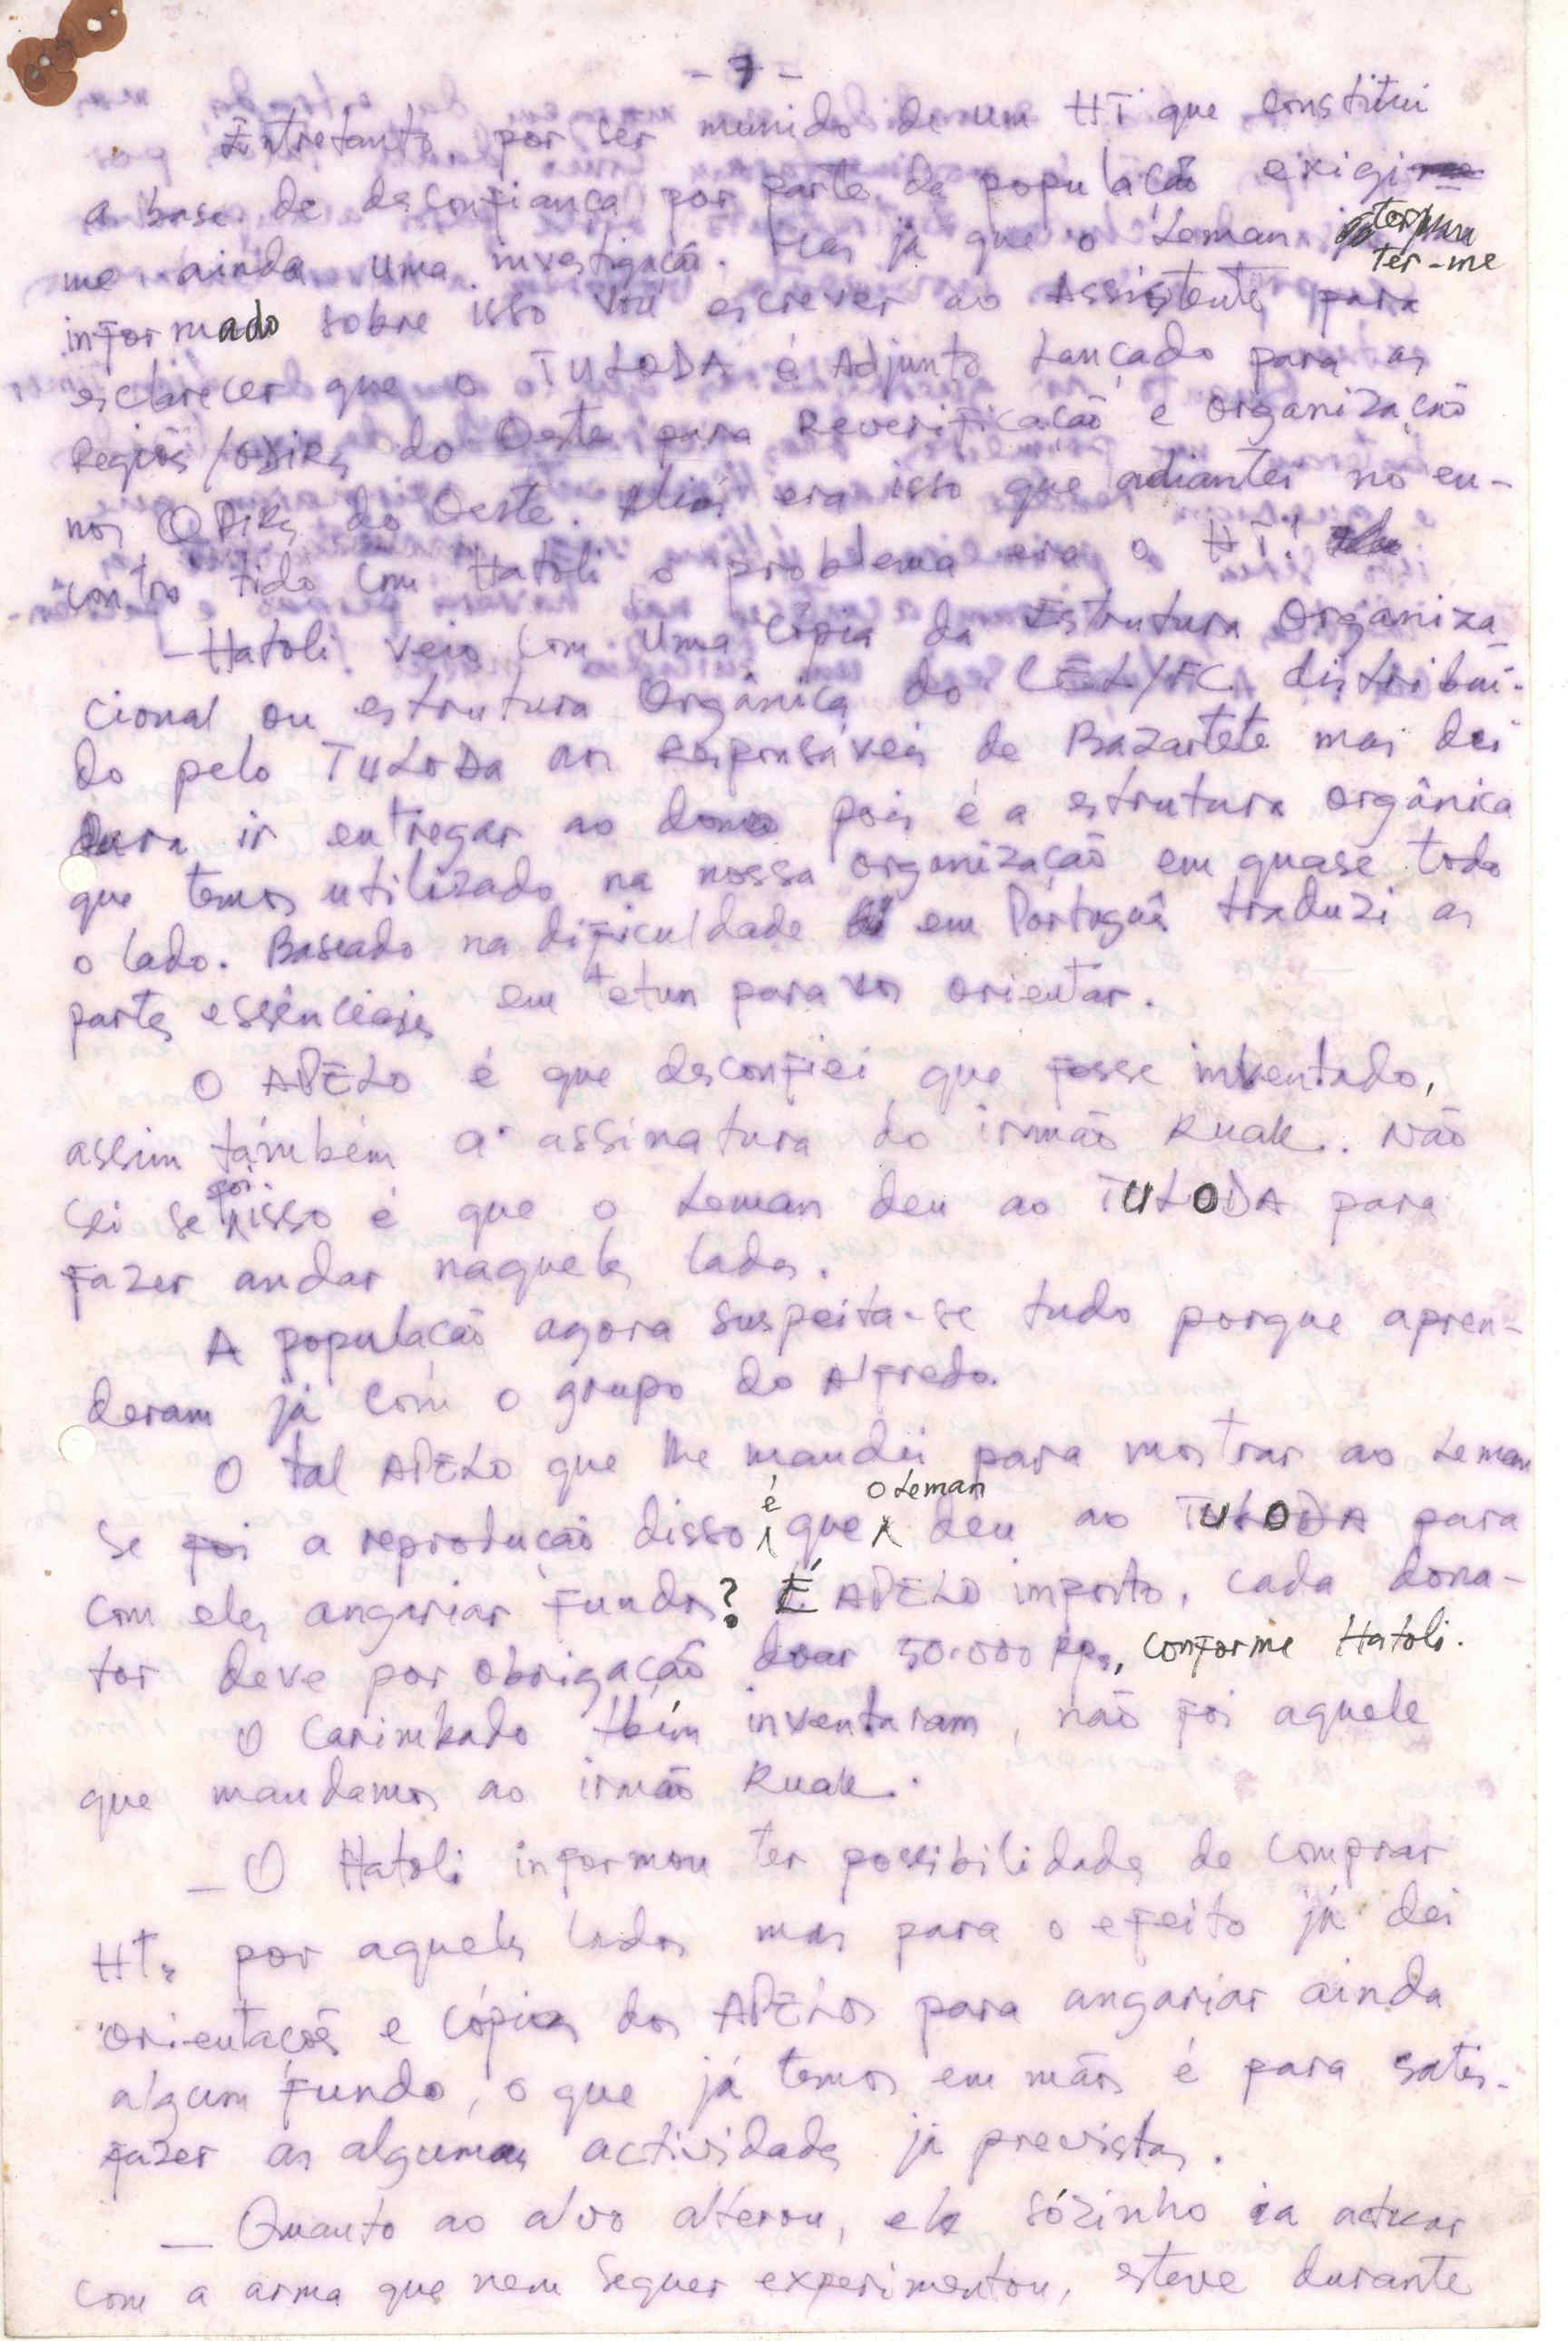 - 7 -
Entretanto por ser munido de um HT que constitui
a base de desconfiança por parte da população exigi
me ainda uma investigação. Mas já que o Leman
ter-me
informado sobre isso vou escrever ao Assistente para
esclarecer que o TULODA é Adjunto Lançado para as
Regiõs/ODIRs do Oeste para Reverificação e organização
nos ODIRs do Oeste. Aliás era isso que adiantei no en-
contro tido com Hatoli o problema era o HT!
- Hatoli veio com uma cópia da Estrutura Organiza-
cional ou estrutura Orgânica do CEL/FC distribuí-
do pelo TULODA aos Responsáveis de Bazartete mas dei
para ir entregar ao dono pois é a estrutura orgânica
que temos utilizado na nossa organização em quase todo
o lado. Baseado na dificuldade em Portuguê traduzi as
partes essênciais em tetun para vos orientar.
O APELO é que desconfiei que fosse inventado,
assim também a assinatura do irmão Ruak. Não
sei se foi isso é que o Leman deu ao TULODA para
fazer andar naqueles lados.
A população agora suspeita-se tudo porque apren-
deram já com o grupo do Alfredo.
O tal APELO que lhe mandei para mostrar ao Leman
é o Leman
se foi a reprodução disso que deu ao TULODA para
com eles angariar fundos? É APELO imposto, cada dona-
tor deve por obrigação doar 50.000 Rps, conforme Hatoli.
O Carimbado tbém inventaram, não foi aquele
que mandamos ao irmão Ruak.
- O Hatoli informou ter possibilidades de comprar
HTs por aqueles lados mas para o efeito já dei
orientaçõs e cópias dos APELOs para angariar ainda
algum fundo, o que já temos em mãos é para satis-
fazer as algumas actividades já previstas.
- Quanto ao alvo alterou, ele sózinho ia actuar
com a arma que nem sequer experimentou, esteve durante